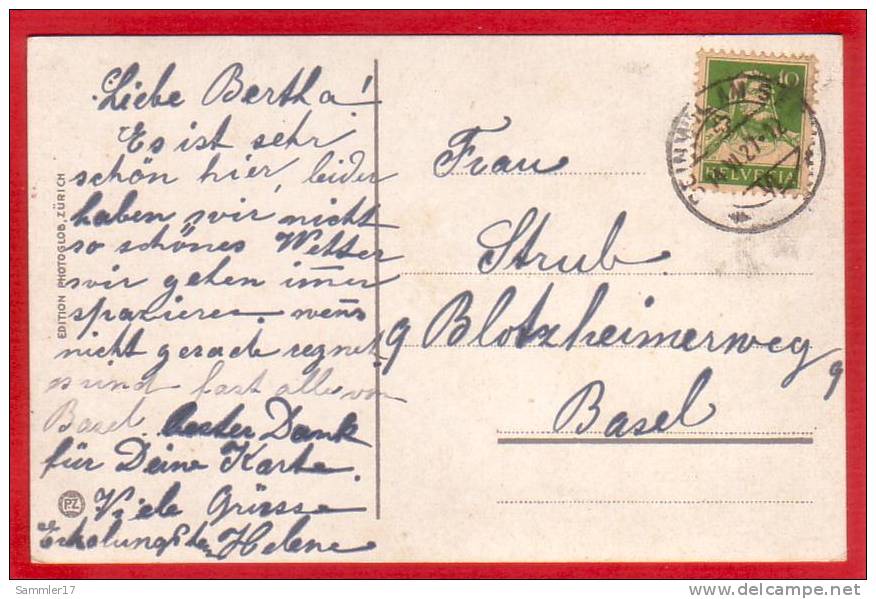 Liebe Bertha!
Es ist sehr
schön hier, leider
haben wir nicht
so schönes Wetter
wir gehen im̅er
spazieren. wen̅s
nicht gerade regnet
sind fast alle von
Basel. bester Dank
für Deine Karte.
Viele Grüsse
Helene
EDITION PHOTOGLOB, ZÜRICH
PZ
Frau
Strub
9 Blotzheimerweg 9
Basel
10
HELVETIA
Sammler17
www.delcampe.net